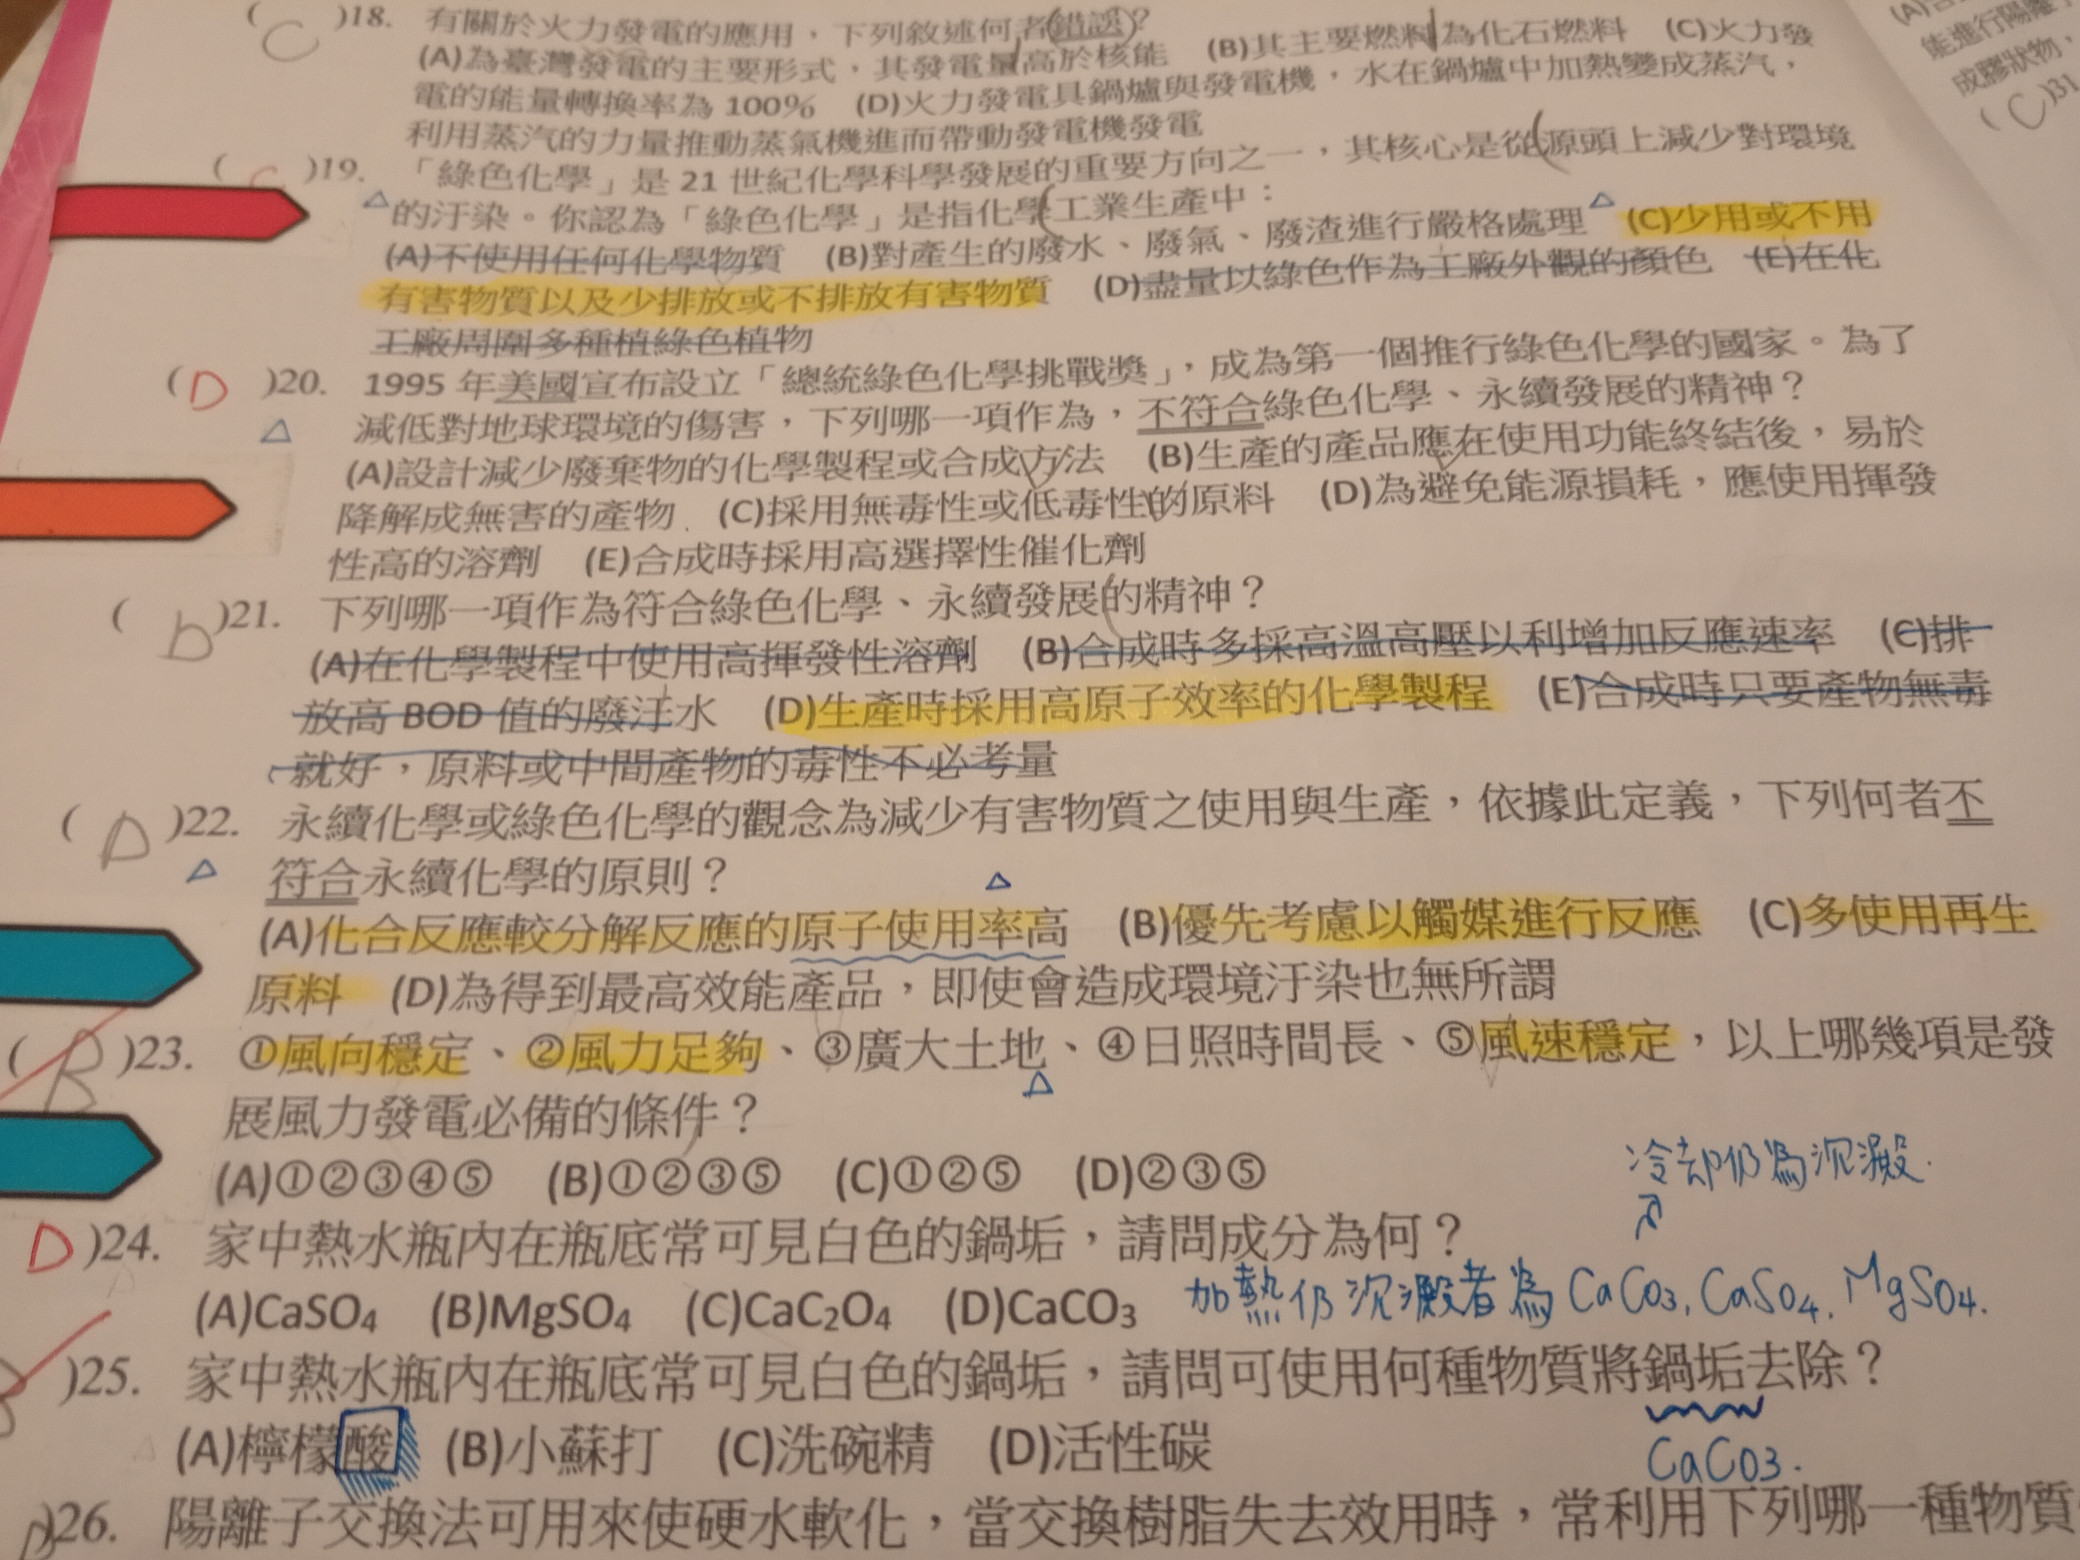 ( C )18. 有關於火力發電的應用，下列敘述何者錯誤？
(A)為臺灣發電的主要形式，其發電量高於核能 (B)其主要燃料為化石燃料 (C)火力發
電的能量轉換率為 100% (D)火力發電具鍋爐與發電機，水在鍋爐中加熱變成蒸汽，
利用蒸汽的力量推動蒸氣機進而帶動發電機發電
( C )19. 「綠色化學」是 21 世紀化學科學發展的重要方向之一，其核心是從源頭上減少對環境
的汙染。你認為「綠色化學」是指化學工業生產中：
(A)不使用任何化學物質 (B)對產生的廢水、廢氣、廢渣進行嚴格處理 (C)少用或不用
有害物質以及少排放或不排放有害物質 (D)盡量以綠色作為工廠外觀的顏色 (E)在化
工廠周圍多種植綠色植物
( D )20. 1995 年美國宣布設立「總統綠色化學挑戰獎」，成為第一個推行綠色化學的國家。為了
減低對地球環境的傷害，下列哪一項作為，不符合綠色化學、永續發展的精神？
(A)設計減少廢棄物的化學製程或合成方法 (B)生產的產品應在使用功能終結後，易於
降解成無害的產物 (C)採用無毒性或低毒性的原料 (D)為避免能源損耗，應使用揮發
性高的溶劑 (E)合成時採用高選擇性催化劑
( D )21. 下列哪一項作為符合綠色化學、永續發展的精神？
(A)在化學製程中使用高揮發性溶劑 (B)合成時多採高溫高壓以利增加反應速率 (C)排
放高 BOD 值的廢汙水 (D)生產時採用高原子效率的化學製程 (E)合成時只要產物無毒
就好，原料或中間產物的毒性不必考量
( D )22. 永續化學或綠色化學的觀念為減少有害物質之使用與生產，依據此定義，下列何者不
符合永續化學的原則？
(A)化合反應較分解反應的原子使用率高 (B)優先考慮以觸媒進行反應 (C)多使用再生
原料 (D)為得到最高效能產品，即使會造成環境汙染也無所謂
( B )23. ①風向穩定、②風力足夠、③廣大土地、④日照時間長、⑤風速穩定，以上哪幾項是發
展風力發電必備的條件？
(A)①②③④⑤ (B)①②③⑤ (C)①②⑤ (D)②③⑤
冷却仍為沉澱.
D )24. 家中熱水瓶內在瓶底常可見白色的鍋垢，請問成分為何？
(A)CaSO₄ (B)MgSO₄ (C)CaC₂O₄ (D)CaCO₃ 加熱仍沉澱者為 CaCO₃, CaSO₄, MgSO₄.
)25. 家中熱水瓶內在瓶底常可見白色的鍋垢，請問可使用何種物質將鍋垢去除？
(A)檸檬酸 (B)小蘇打 (C)洗碗精 (D)活性碳
CaCO₃.
)26. 陽離子交換法可用來使硬水軟化，當交換樹脂失去效用時，常利用下列哪一種物質
能進行陽離
成膠狀物，
( C )31